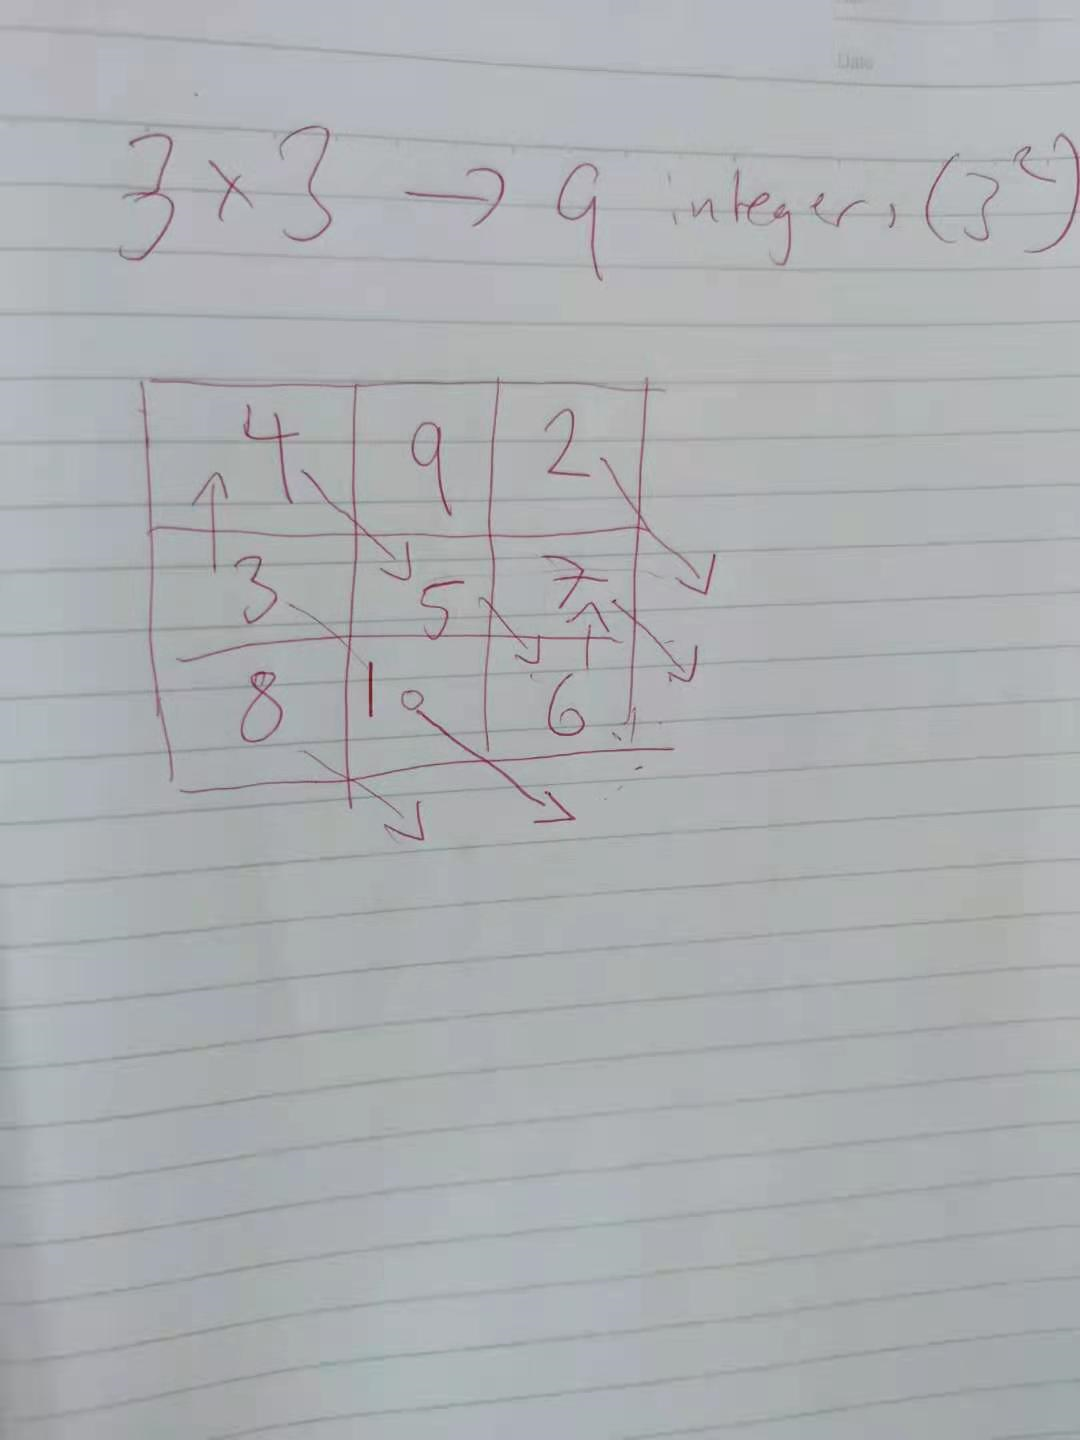 Date
3 × 3 → 9 integers (3²)
4 9 2
3 5 7
8 1 6